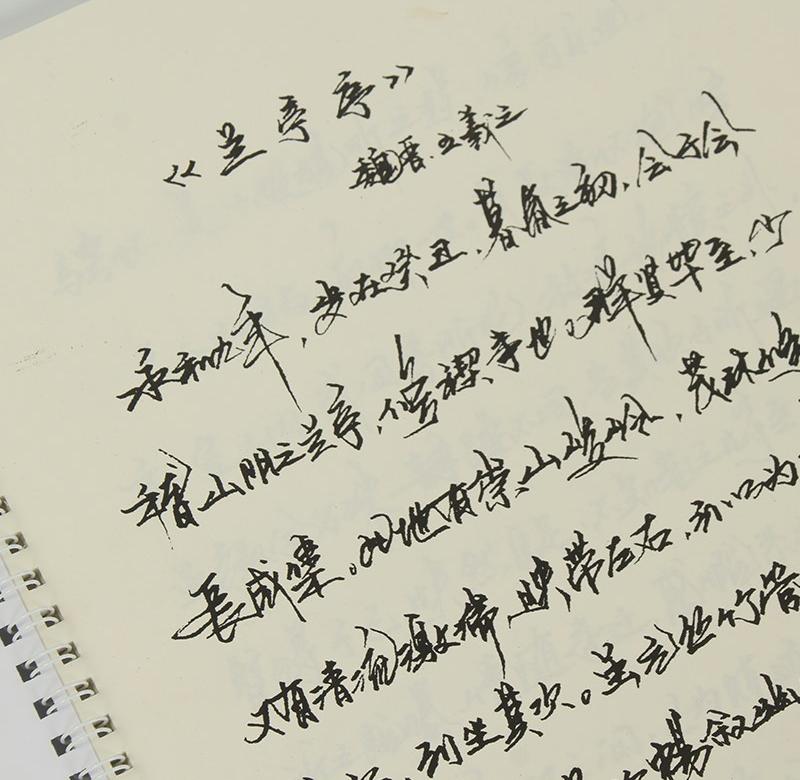 《兰亭序》
魏晋.王羲之
永和九年，岁在癸丑，暮春之初，会于会
稽山阴之兰亭，修禊事也。群贤毕至，少
长咸集。此地有崇山峻岭，茂林修
又有清流激湍，映带左右，引以为
列坐其次。虽无丝竹管
畅叙幽